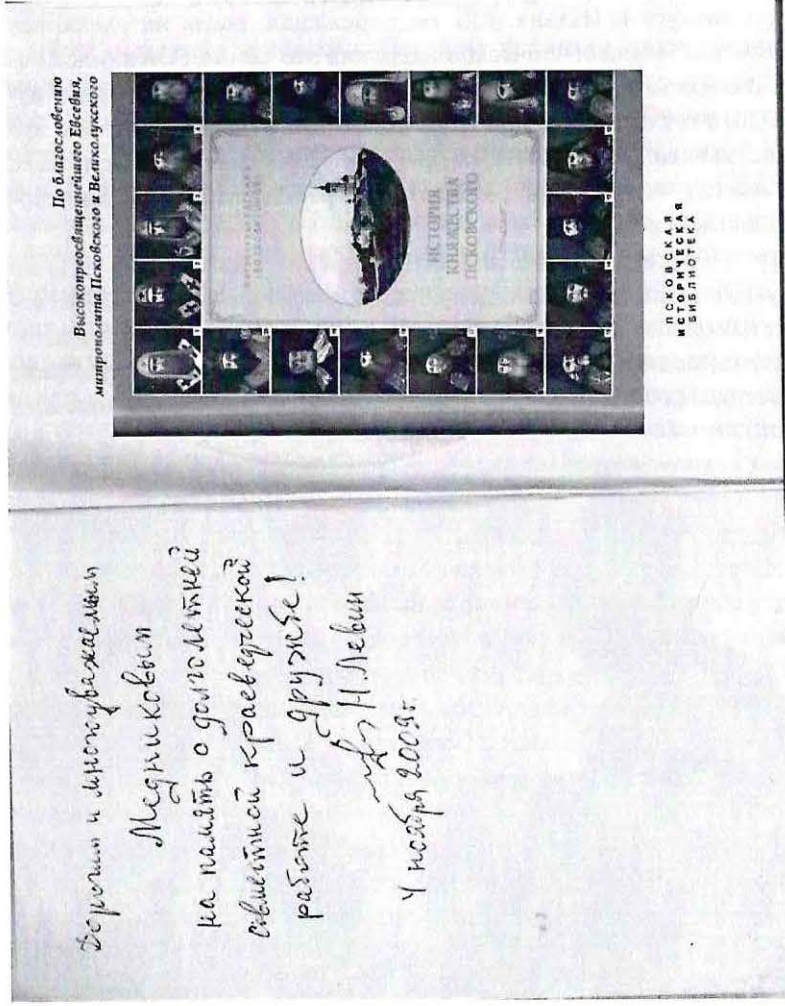 По благословению
Высокопреосвященнейшего Евсевия,
митрополита Псковского и Великолукского
ИСТОРИЯ
КНЯЖЕСТВА
ПСКОВСКОГО
ПСКОВСКАЯ
ИСТОРИЧЕСКАЯ
БИБЛИОТЕКА
Дорогим и многоуважаемым
Медниковым
на память о долголетней
совместной краеведческой
работе и дружбе!
Н Левин
4 ноября 2009г.